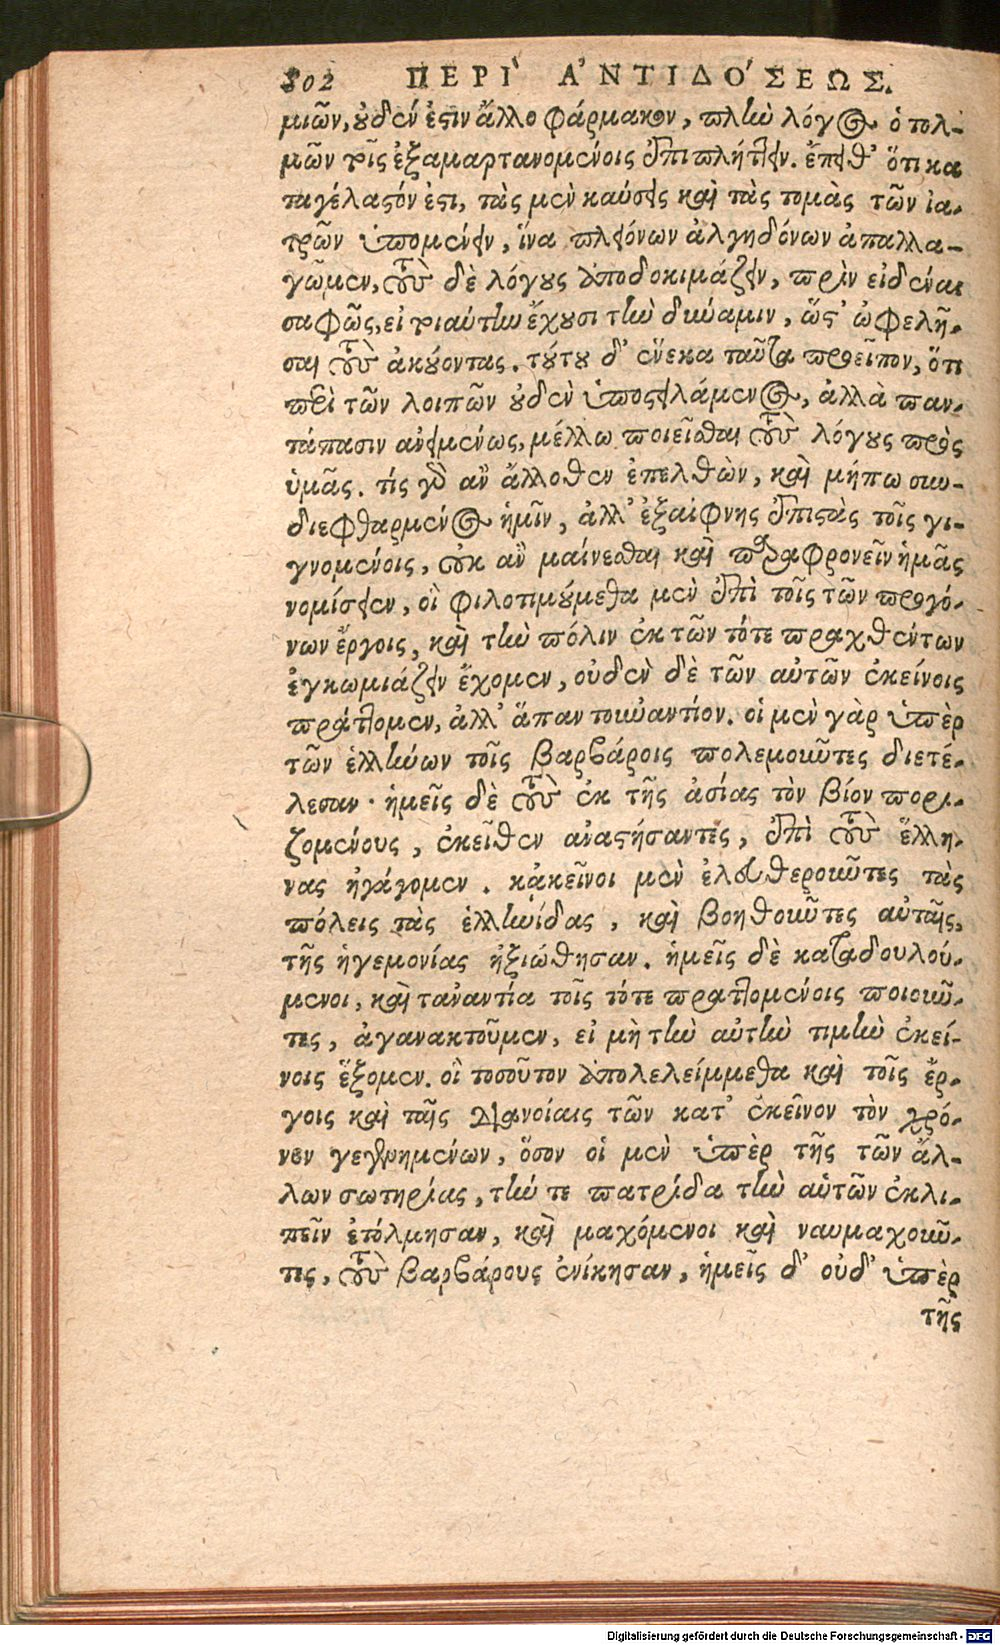 302 ΠΕΡΙ` Α'ΝΤΙΔΟ'ΣΕΩΣ.
μιῶν, οὐδέν ἐστιν ἄλλο φάρμακον, πλὴν λόγος ὁ τολ-
μῶν τοῖς ἐξαμαρτανομένοις ἐπιπλήττειν. ἔπειθ' ὅτι κα
ταγέλαστόν ἐστι, τὰς μὲν καύσεις καὶ τὰς τομὰς τῶν ἰα-
τρῶν ὑπομένειν, ἵνα πλειόνων ἀλγηδόνων ἀπαλλα-
γῶμεν, τοὺς δὲ λόγους ἀποδοκιμάζειν, πρὶν εἰδέναι
σαφῶς, εἰ τοιαύτην ἔχουσι τὴν δύναμιν, ὥστ' ὠφελῆ-
σαι τοὺς ἀκούοντας. τούτου δ' ἕνεκα ταῦτα προεῖπον, ὅτι
περὶ τῶν λοιπῶν οὐδὲν ὑποστειλάμενος, ἀλλὰ παν-
τάπασιν ἀνειμένως, μέλλω ποιεῖσθαι τοὺς λόγους πρὸς
ὑμᾶς. τίς γὰρ ἂν ἄλλοθεν ἐπελθὼν, καὶ μήπω συν-
διεφθαρμένος ἡμῖν, ἀλλ' ἐξαίφνης ἐπιστὰς τοῖς γι-
γνομένοις, οὐκ ἂν μαίνεσθαι καὶ παραφρονεῖν ἡμᾶς
νομίσειεν, οἳ φιλοτιμούμεθα μὲν ἐπὶ τοῖς τῶν προγό-
νων ἔργοις, καὶ τὴν πόλιν ἐκ τῶν τότε πραχθέντων
ἐγκωμιάζειν ἔχομεν, οὐδὲν δὲ τῶν αὐτῶν ἐκείνοις
πράττομεν, ἀλλ' ἅπαν τουναντίον. οἱ μὲν γὰρ ὑπὲρ
τῶν ἑλλήνων τοῖς βαρβάροις πολεμοῦντες διετέ-
λεσαν· ἡμεῖς δὲ τοὺς ἐκ τῆς ἀσίας τὸν βίον πορι-
ζομένους, ἐκεῖθεν ἀναστήσαντες, ἐπὶ τοὺς ἕλλη-
νας ἠγάγομεν. κἀκεῖνοι μὲν ἐλευθεροῦντες τὰς
πόλεις τὰς ἑλληνίδας, καὶ βοηθοῦντες αὐταῖς,
τῆς ἡγεμονίας ἠξιώθησαν. ἡμεῖς δὲ καταδουλού-
μενοι, καὶ τἀναντία τοῖς τότε πραττομένοις ποιοῦν-
τες, ἀγανακτοῦμεν, εἰ μὴ τὴν αὐτὴν τιμὴν ἐκεί-
νοις ἕξομεν. οἳ τοσοῦτον ἀπολελείμμεθα καὶ τοῖς ἔρ-
γοις καὶ ταῖς διανοίαις τῶν κατ' ἐκεῖνον τὸν χρό-
νον γεγενημένων, ὅσον οἱ μὲν ὑπὲρ τῆς τῶν ἄλ-
λων σωτηρίας, τήν τε πατρίδα τὴν αὑτῶν ἐκλι-
πεῖν ἐτόλμησαν, καὶ μαχόμενοι καὶ ναυμαχοῦν-
τες, τοὺς βαρβάρους ἐνίκησαν, ἡμεῖς δ' οὐδ' ὑπὲρ
τῆς
Digitalisierung gefördert durch die Deutsche Forschungsgemeinschaft - DFG